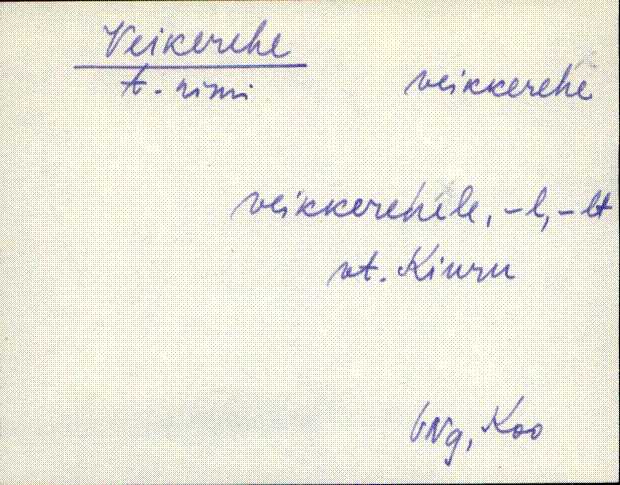 Veikerehe
t. nimi
veikkerehe
veikkerehele, -l, -lt
vt. Kiuru
VNg, Koo